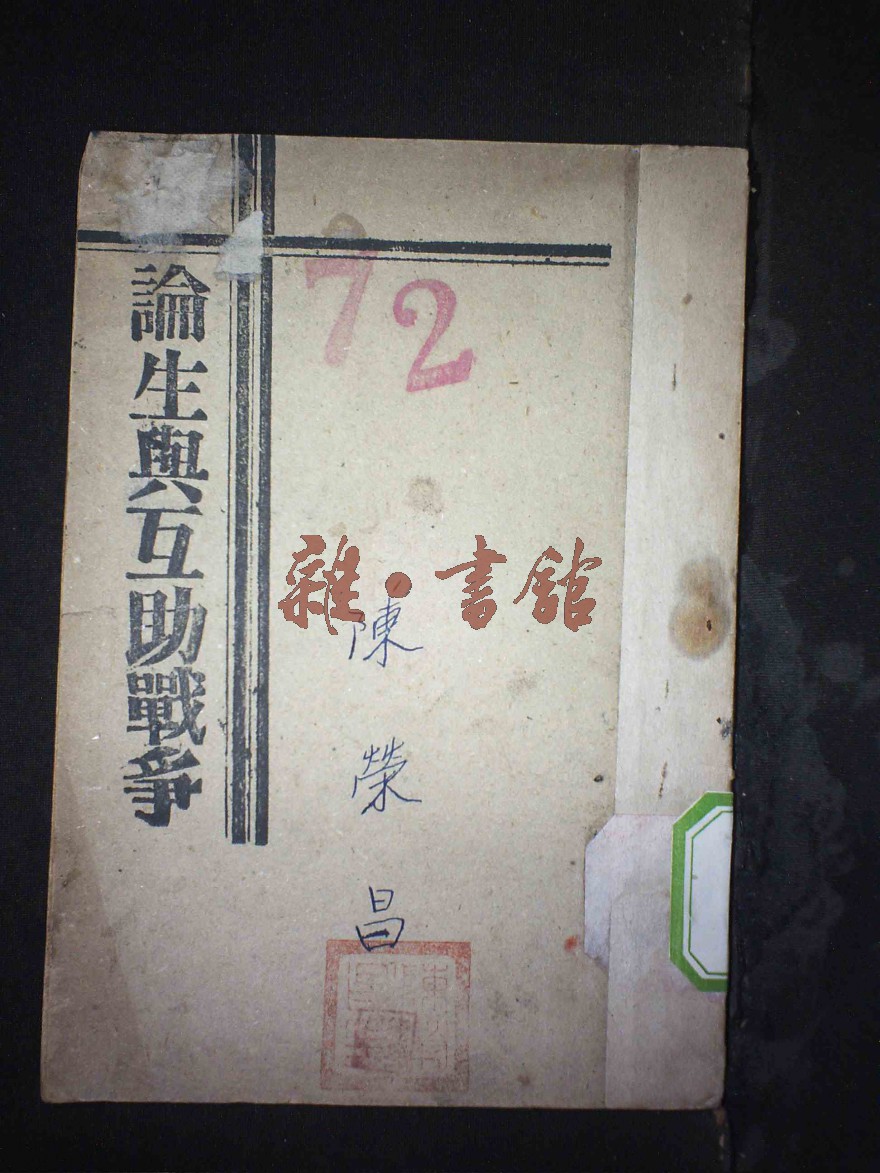 論生與互助戰爭
72
雜·書館
陳榮昌